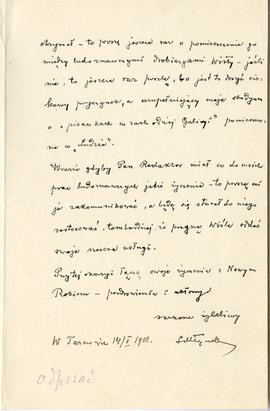 otrzymał – to proszę jeszcze raz o pomieszczenie po
między ludoznawczymi drobiazgami Wisły – jeśli
nie, to jeszcze raz poszlę, bo jest to dosyć cie-
kawy przyczynek, a uzupełniający moje studyum
o "pisankach w zachodniej Galicyi" pomieszczo-
ne w "Ludzie".
Wrazie gdyby Pan Redaktor miał co do moich
prac ludoznawczych jakie życzenia – to proszę mi
je zakomunikować, a będę się starał do niego
zastosować, tembardziej, że pragnę Wiśle oddać
swoje szczere usługi.
Przytej okazyi łączę swoje życzenia z Nowym
Rokiem – pozdrowienia i
szczerze życzliwy
W Tarnowie 14/I 1901.
odpisać